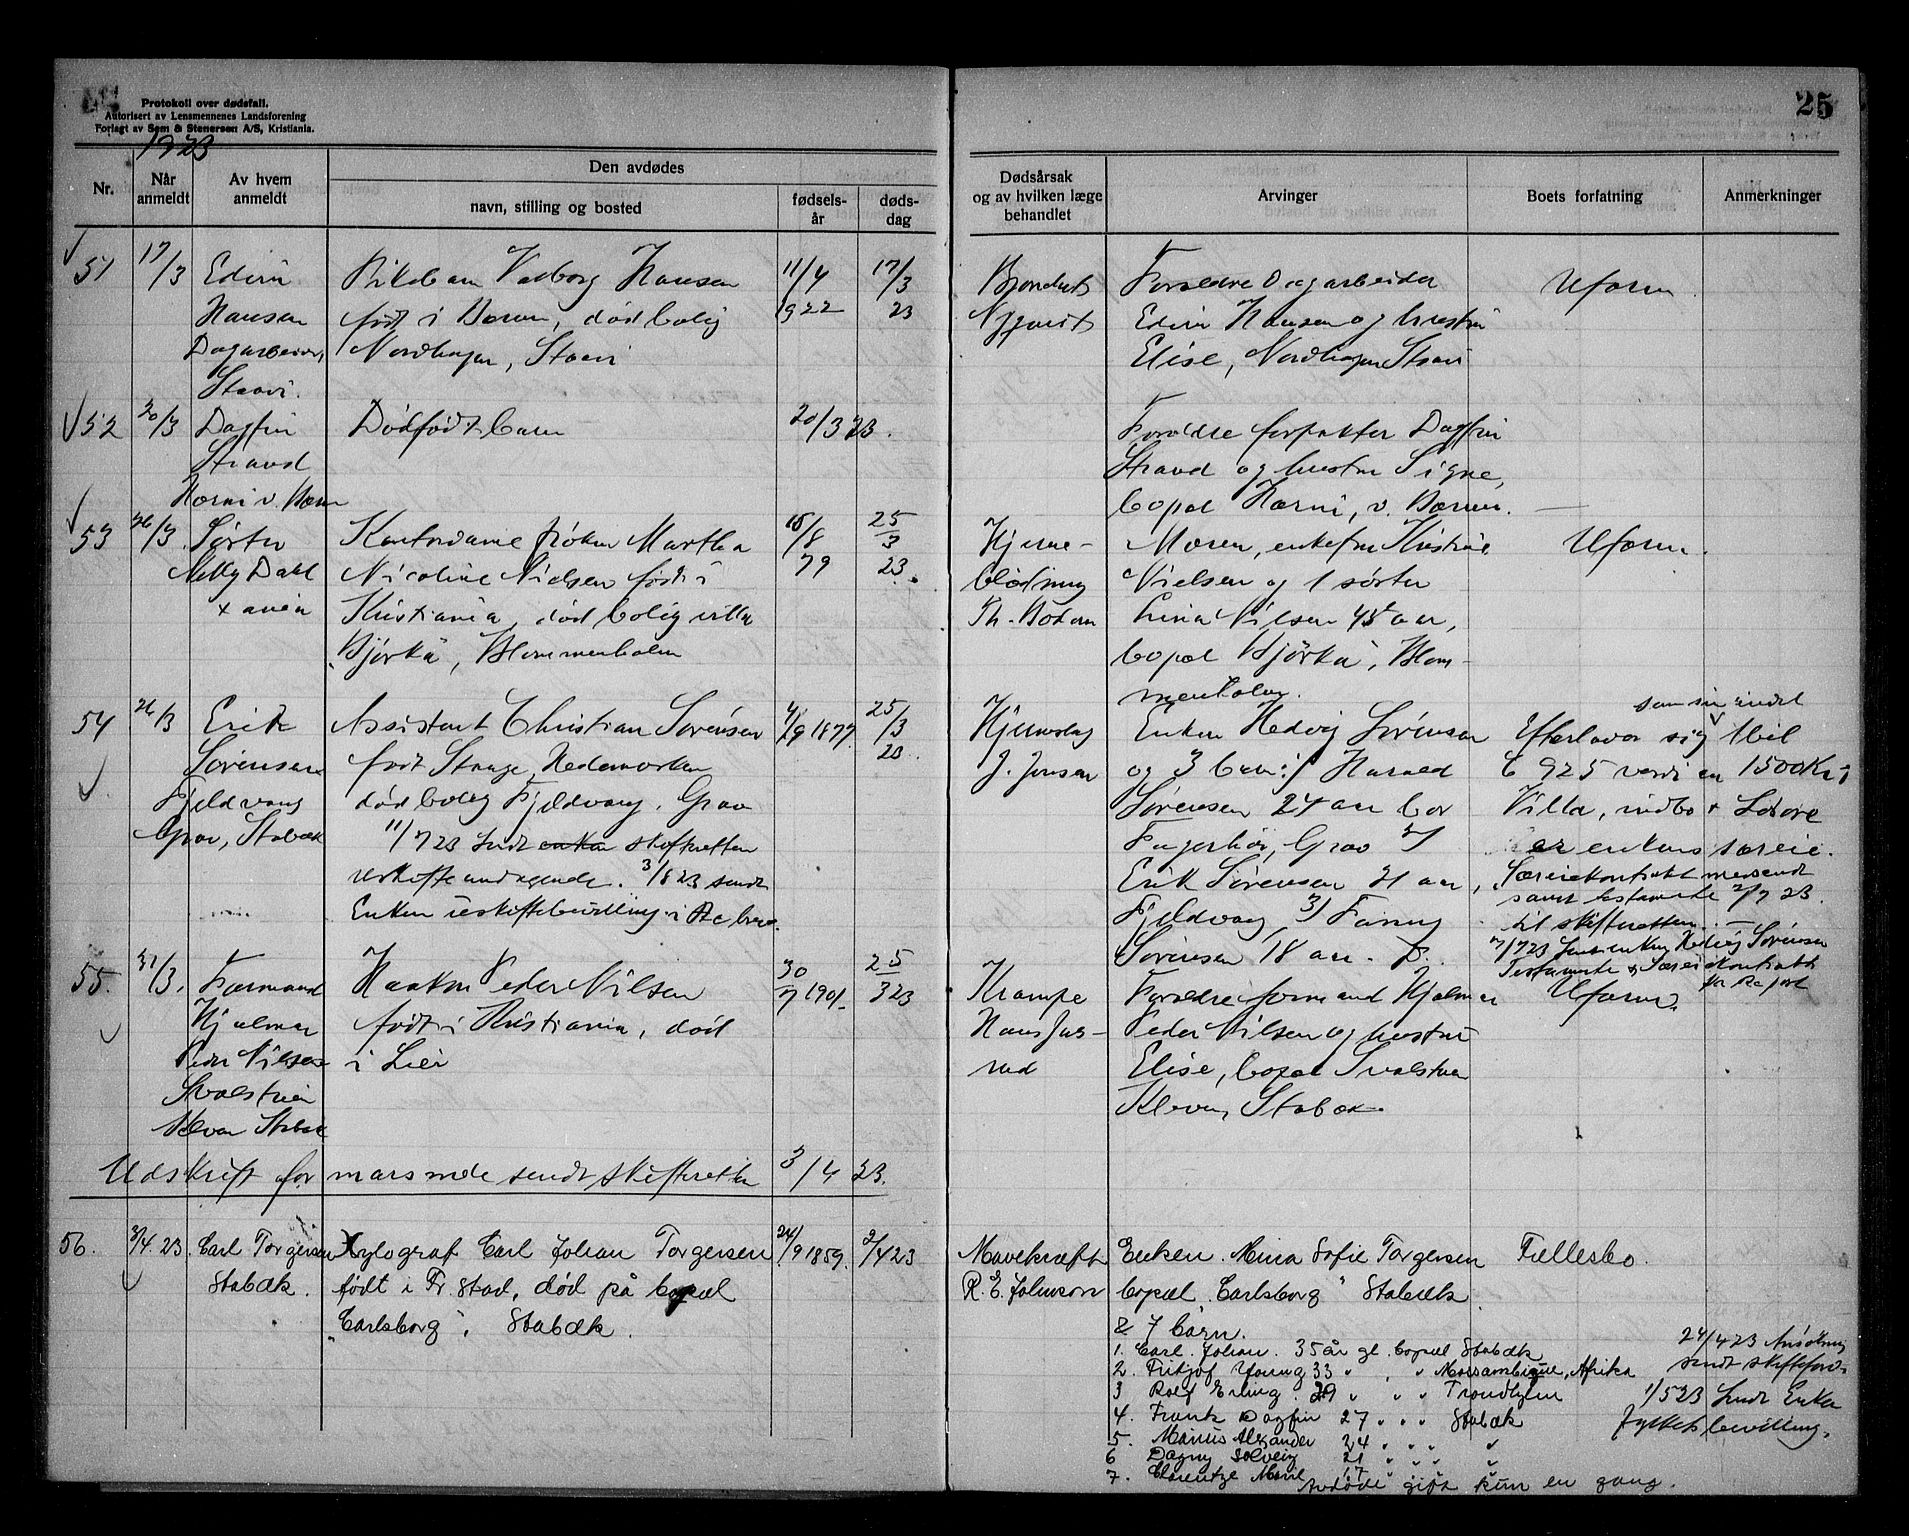 Protokoll over dødsfall.
Autorisert av Lensmennenes Landsforening
Forlagt av Sem & Stenersen A/S, Kristiania.
25
1923
Nr.
Når anmeldt
Av hvem anmeldt
Den avdødes
navn, stilling og bosted
fødsels-år
døds-dag
Dødsårsak og av hvilken læge behandlet
Arvinger
Boets forfatning
Anmerkninger
51 17/3 Edvin Pikebarn Valborg Hansen 11/4 17/3 Foreldre Dagarbeider Uform
Hansen født i Bærum, død bolig 1922 23 Nygaard Edvin Hansen og hustru
Dagarbeider, Nordhagen, Stavi Elise, Nordhagen Stavi
Staavi.
52 20/3 Dagfin Dødfødt barn 20/3 23. Foreldre forpakter Dagfin
Strand Strand og hustru Signe,
v. Bærum bopæl v. Bærum.
53 26/3 Søster Kontordame frøken Martha 15/8 25/3 Hjerne- Moren, enkefru Kristine Uform.
Melly Dahl Nicoline Nielsen født i 79 23. blødning Nielsen og 1 søster
x ania Kristiania, død bolig villa Th. Bodom Lina Nilsen 45 aar,
"Bjørka", Blommenholm bopæl "Bjørka", Blom-
menholm.
54 26/3 Erik Assistent Christian Sørensen 4/9 1877. 25/3 Hjerneslag Enken Hedvig Sørensen Efterlater sig 1 bil
Sørensen født Stange, Hedemarken 23. J. Jensen og 3 barn: 1/ Harald C 925 verdi ca 1500 Kr.
Fjeldvang død bolig Fjeldvang, Grav Sørensen 24 aar bor Villa, indbo + Løsøre
Grav, Stabæk 11/7 23 sendt enken skifteretten Fagerhøi, Grav 2/ er enkens særeie.
uskifte andragende. 3/8 23 sendt Erik Sørensen 21 aar, Særeiekontrakt medsendt
Enken uskiftebevilling i Rec brev. Fjeldvang, 3/ Fanny samt testamente 2/7 23
Sørensen 18 aar. D. til skifteretten. —
7/7 23 sendt enken Hedvig Sørensen
Testamente & Særeiekontrakt
55. 31/3. Formand Haakon Peder Nilsen 30/7 1901. 25/3 23 Krampe Foreldre formand Hjalmar Uform.
Hjalmar født i Kristiania, død Hans Jus- Peder Nilsen og hustru
Peder Nilsen i Lier rud Elise, bopæl Svalstuen
Svalstuen Kleven, Stabæk.
Kleven Stabæk
Udskrift for mars mde sendt skifteretten 3/4 23.
56. 3/4. 23. Carl Torgersen Xylograf Carl Johan Torgersen 24/9 1859. 2/4 23 Mavekræft Enken. Mina Sofie Torgersen Fællesbo.
Stabæk. født i Fr. stad, død på bopæl R. E. Johnson bopæl "Carlsborg" Stabæk.
"Carlsborg", Stabæk. & 7 barn.
1. Carl. Johan. 35 år gl. bopæl Stabæk 24/4 23 Ansökning
2. Fritjof Young 33 " " " Mossambique, Afrika sendt skifteford.
3 Rolf Erling. 29 " " " Trondhjem 1/5 23 Sendt Enken
4. Frank Dagfin 27 " " " Stabæk fylkets bevilling.
5. Marius Alexander 24 " " " "
6 Dagny Solveig 21 " " " "
7. Clarentze Marie 17 " " "
Avdøde gift kun en gang.